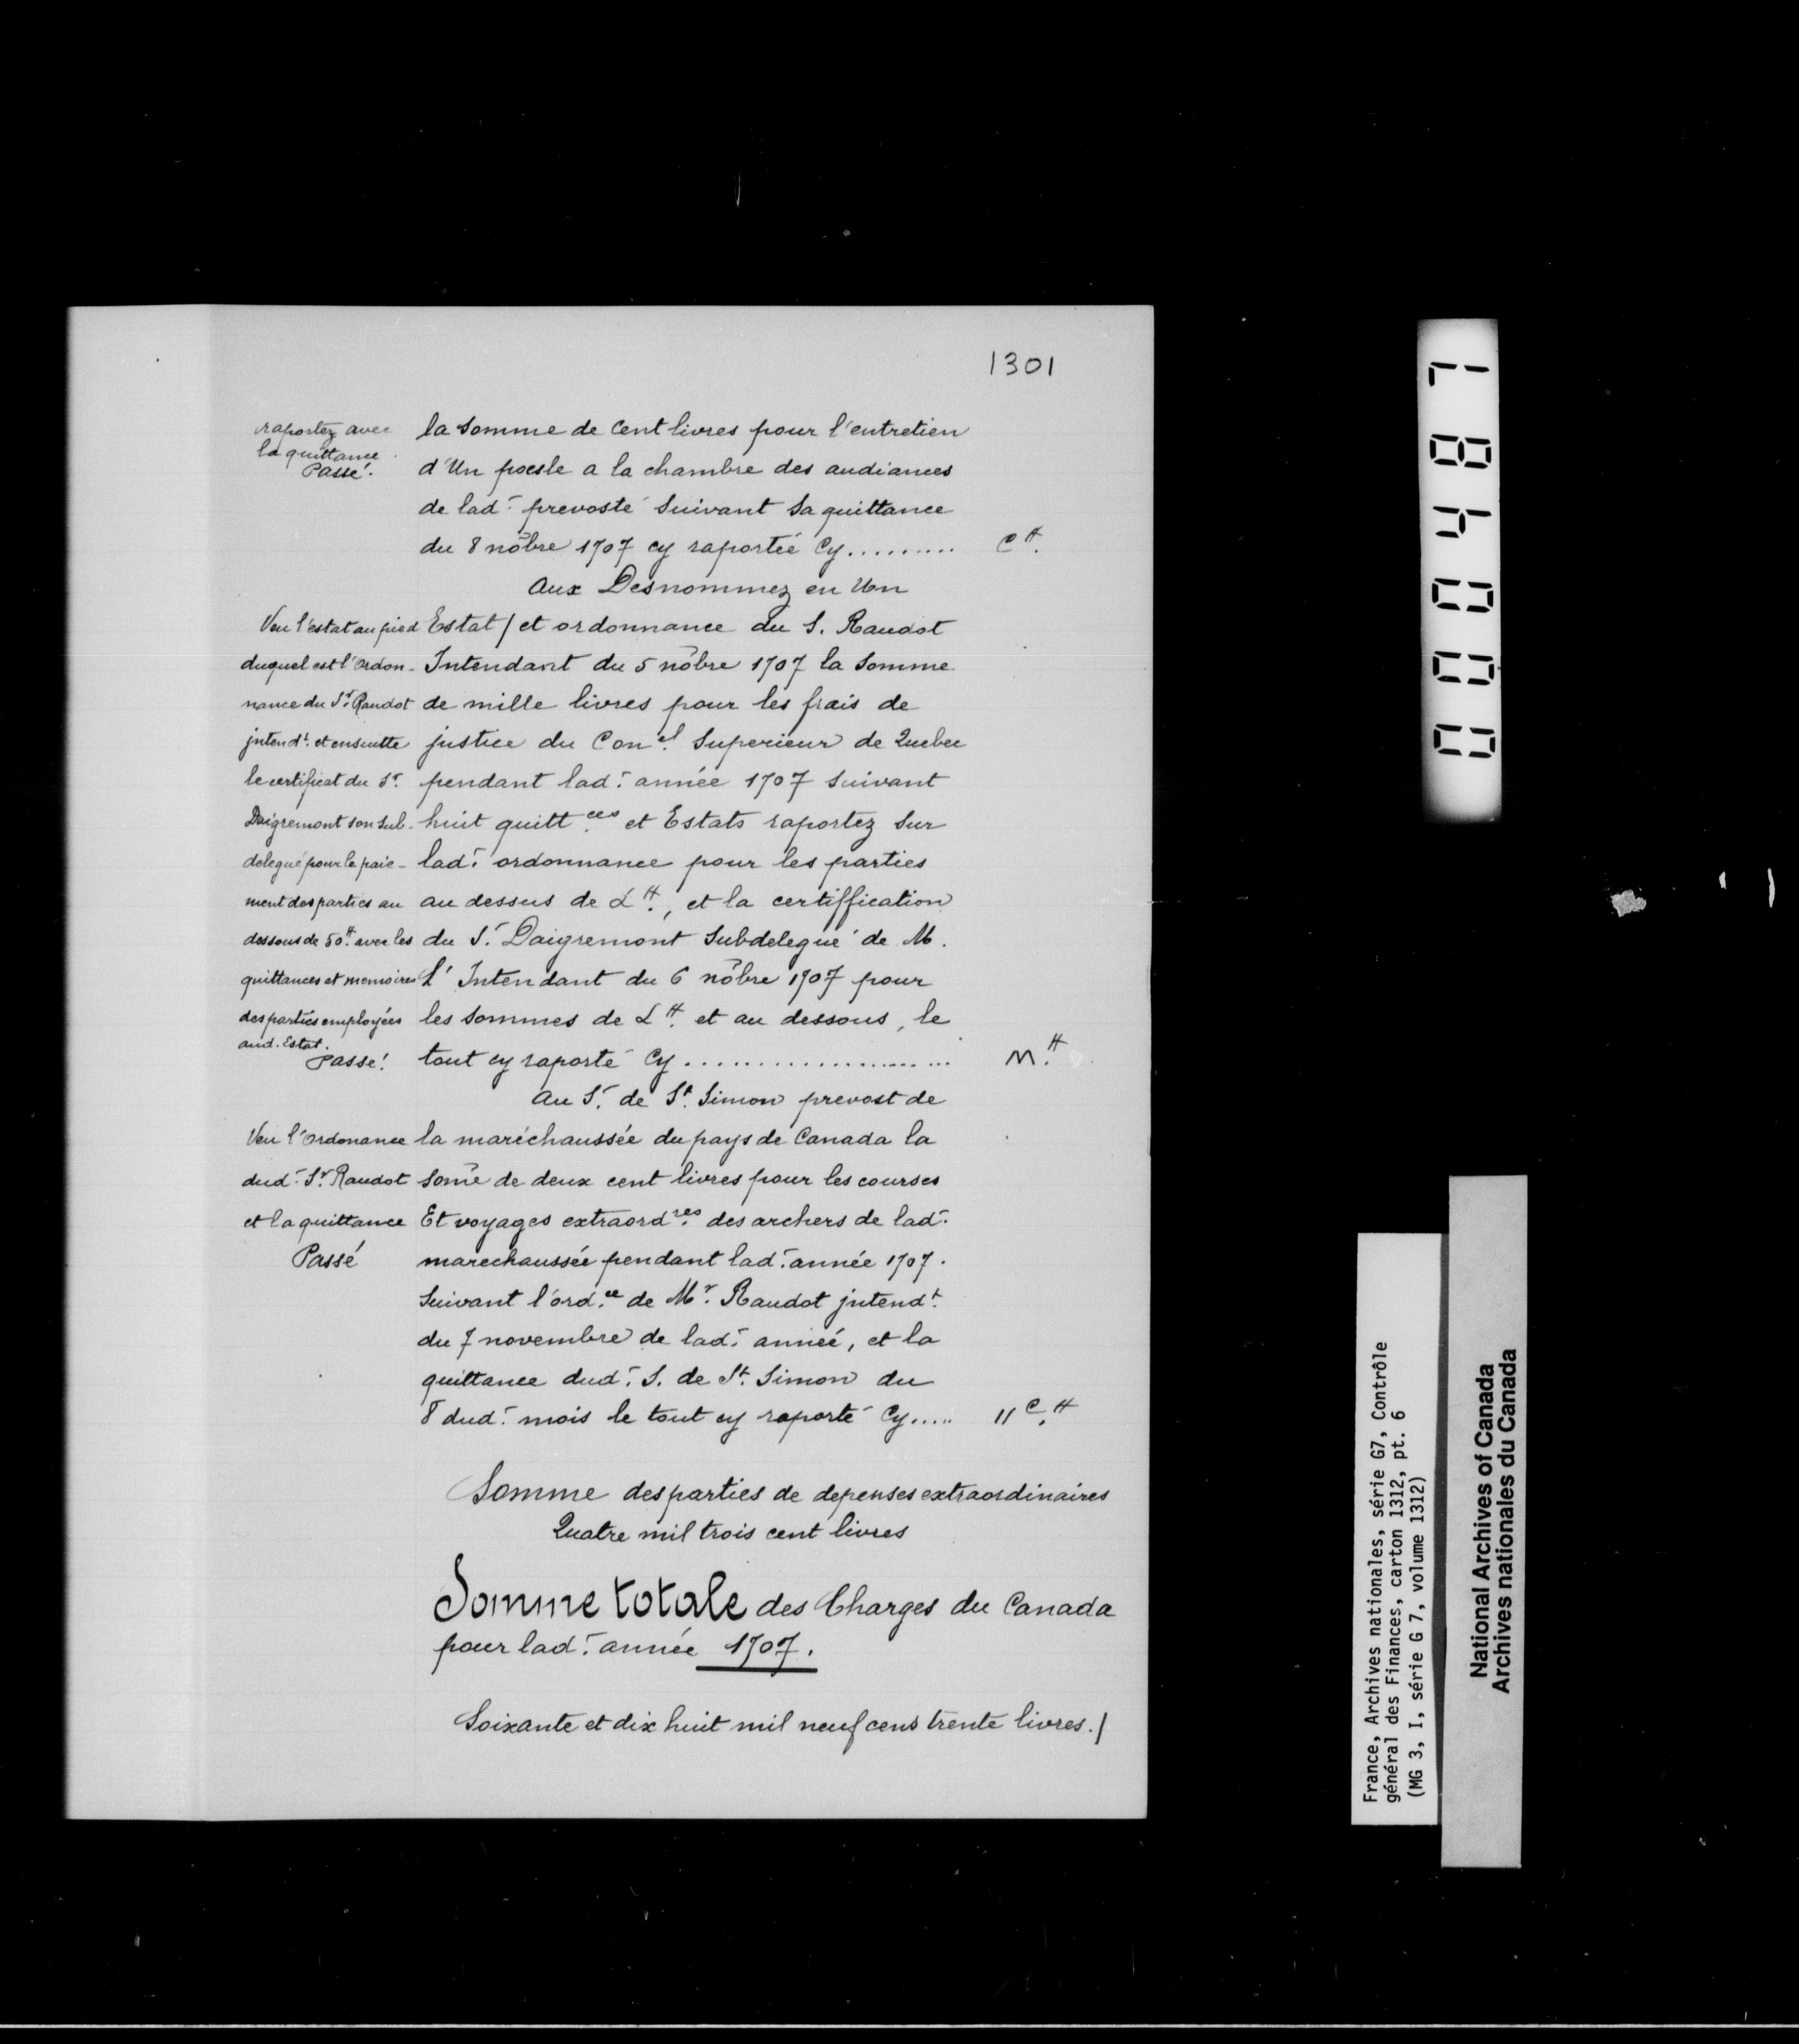 1301
raportez avec
la quittance.
Passé.
la somme de Cent livres pour l'entretien
d'Un poesle a la chambre des audiances
de lad. prevosté suivant sa quittance
du 8 nôbre 1707 cy raportée Cy......... C ₶.
Aux Desnommez en Un
Estat / et ordonnance du S. Raudot
Intendant du 5 nôbre 1707 la Somme
de mille livres pour les frais de
justice du Con.el Superieur de Quebec
pendant lad. année 1707 suivant
huit quitt.ces et Estats raportez sur
lad. ordonnance pour les parties
au dessus de L ₶., et la certiffication
du S. Daigremont Subdelegué de M.
L'Intendant du 6 nôbre 1707 pour
les sommes de L ₶. et au dessous, le
tout cy raporté Cy..................... M.₶
Veu l'estat au pied
duquel est l'ordon-
nance du Sr. Raudot
jntendt. et ensuitte
le certificat du Sr.
Daigremont son sub-
delegué pour le paie-
ment des parties au
dessous de 50 ₶. avec les
quittances et memoires
des parties employées
aud. Estat.
Passé.
Au S. de St. Simon prevost de
la maréchaussée du pays de Canada la
some de deux cent livres pour les courses
Et voyages extraord.res des archers de lad.
marechaussée pendant lad. année 1707.
Suivant l'ord.ce de Mr. Raudot jntendt.
du 7 novembre de lad. année, et la
quittance dud. S. de St. Simon du
8 dud. mois le tout cy raporté Cy..... 11 C.₶
Veu l'ordonance
dud. Sr. Raudot
et la quittance
Passé
Somme des parties de depenses extraordinaires
Quatre mil trois cent livres
Somme totale des Charges du Canada
pour lad. année 1707.
Soixante et dix huit mil neuf cens trente livres./
000487
France, Archives nationales, série G7, Contrôle
général des Finances, carton 1312, pt. 6
(MG 3, I, série G 7, volume 1312)
National Archives of Canada
Archives nationales du Canada